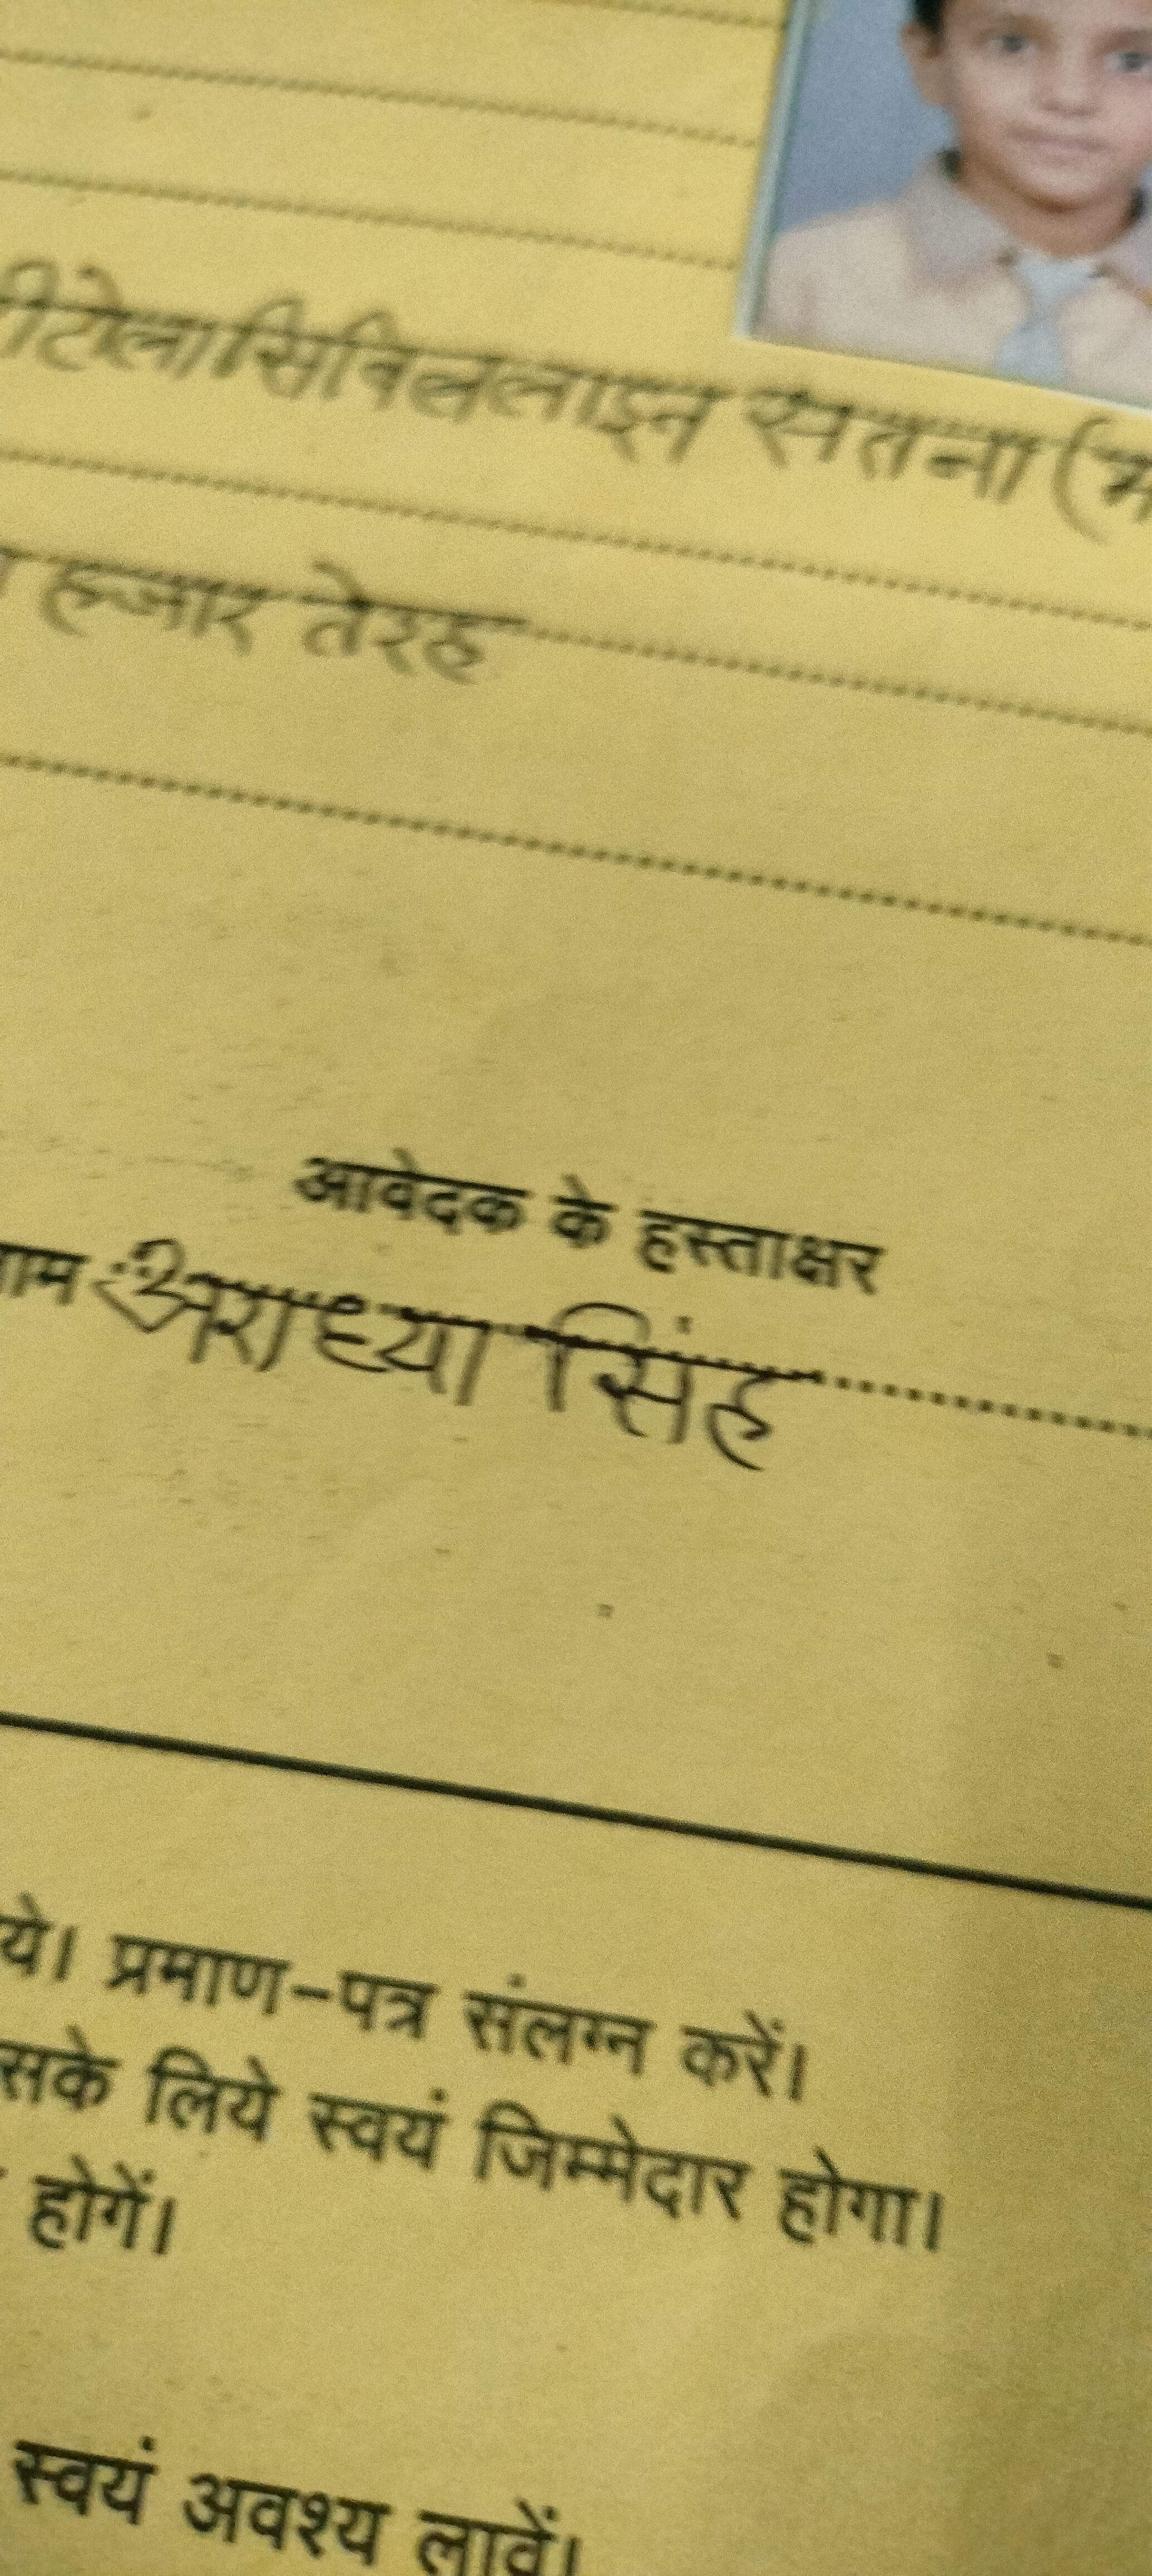 सिविललाइन सतना (म
हजार तेरह
आवेदक के हस्ताक्षर
नाम अराध्या सिंह
ये। प्रमाण-पत्र संलग्न करें।
सके लिये स्वयं जिम्मेदार होगा।
होगें।
स्वयं अवश्य लावें।